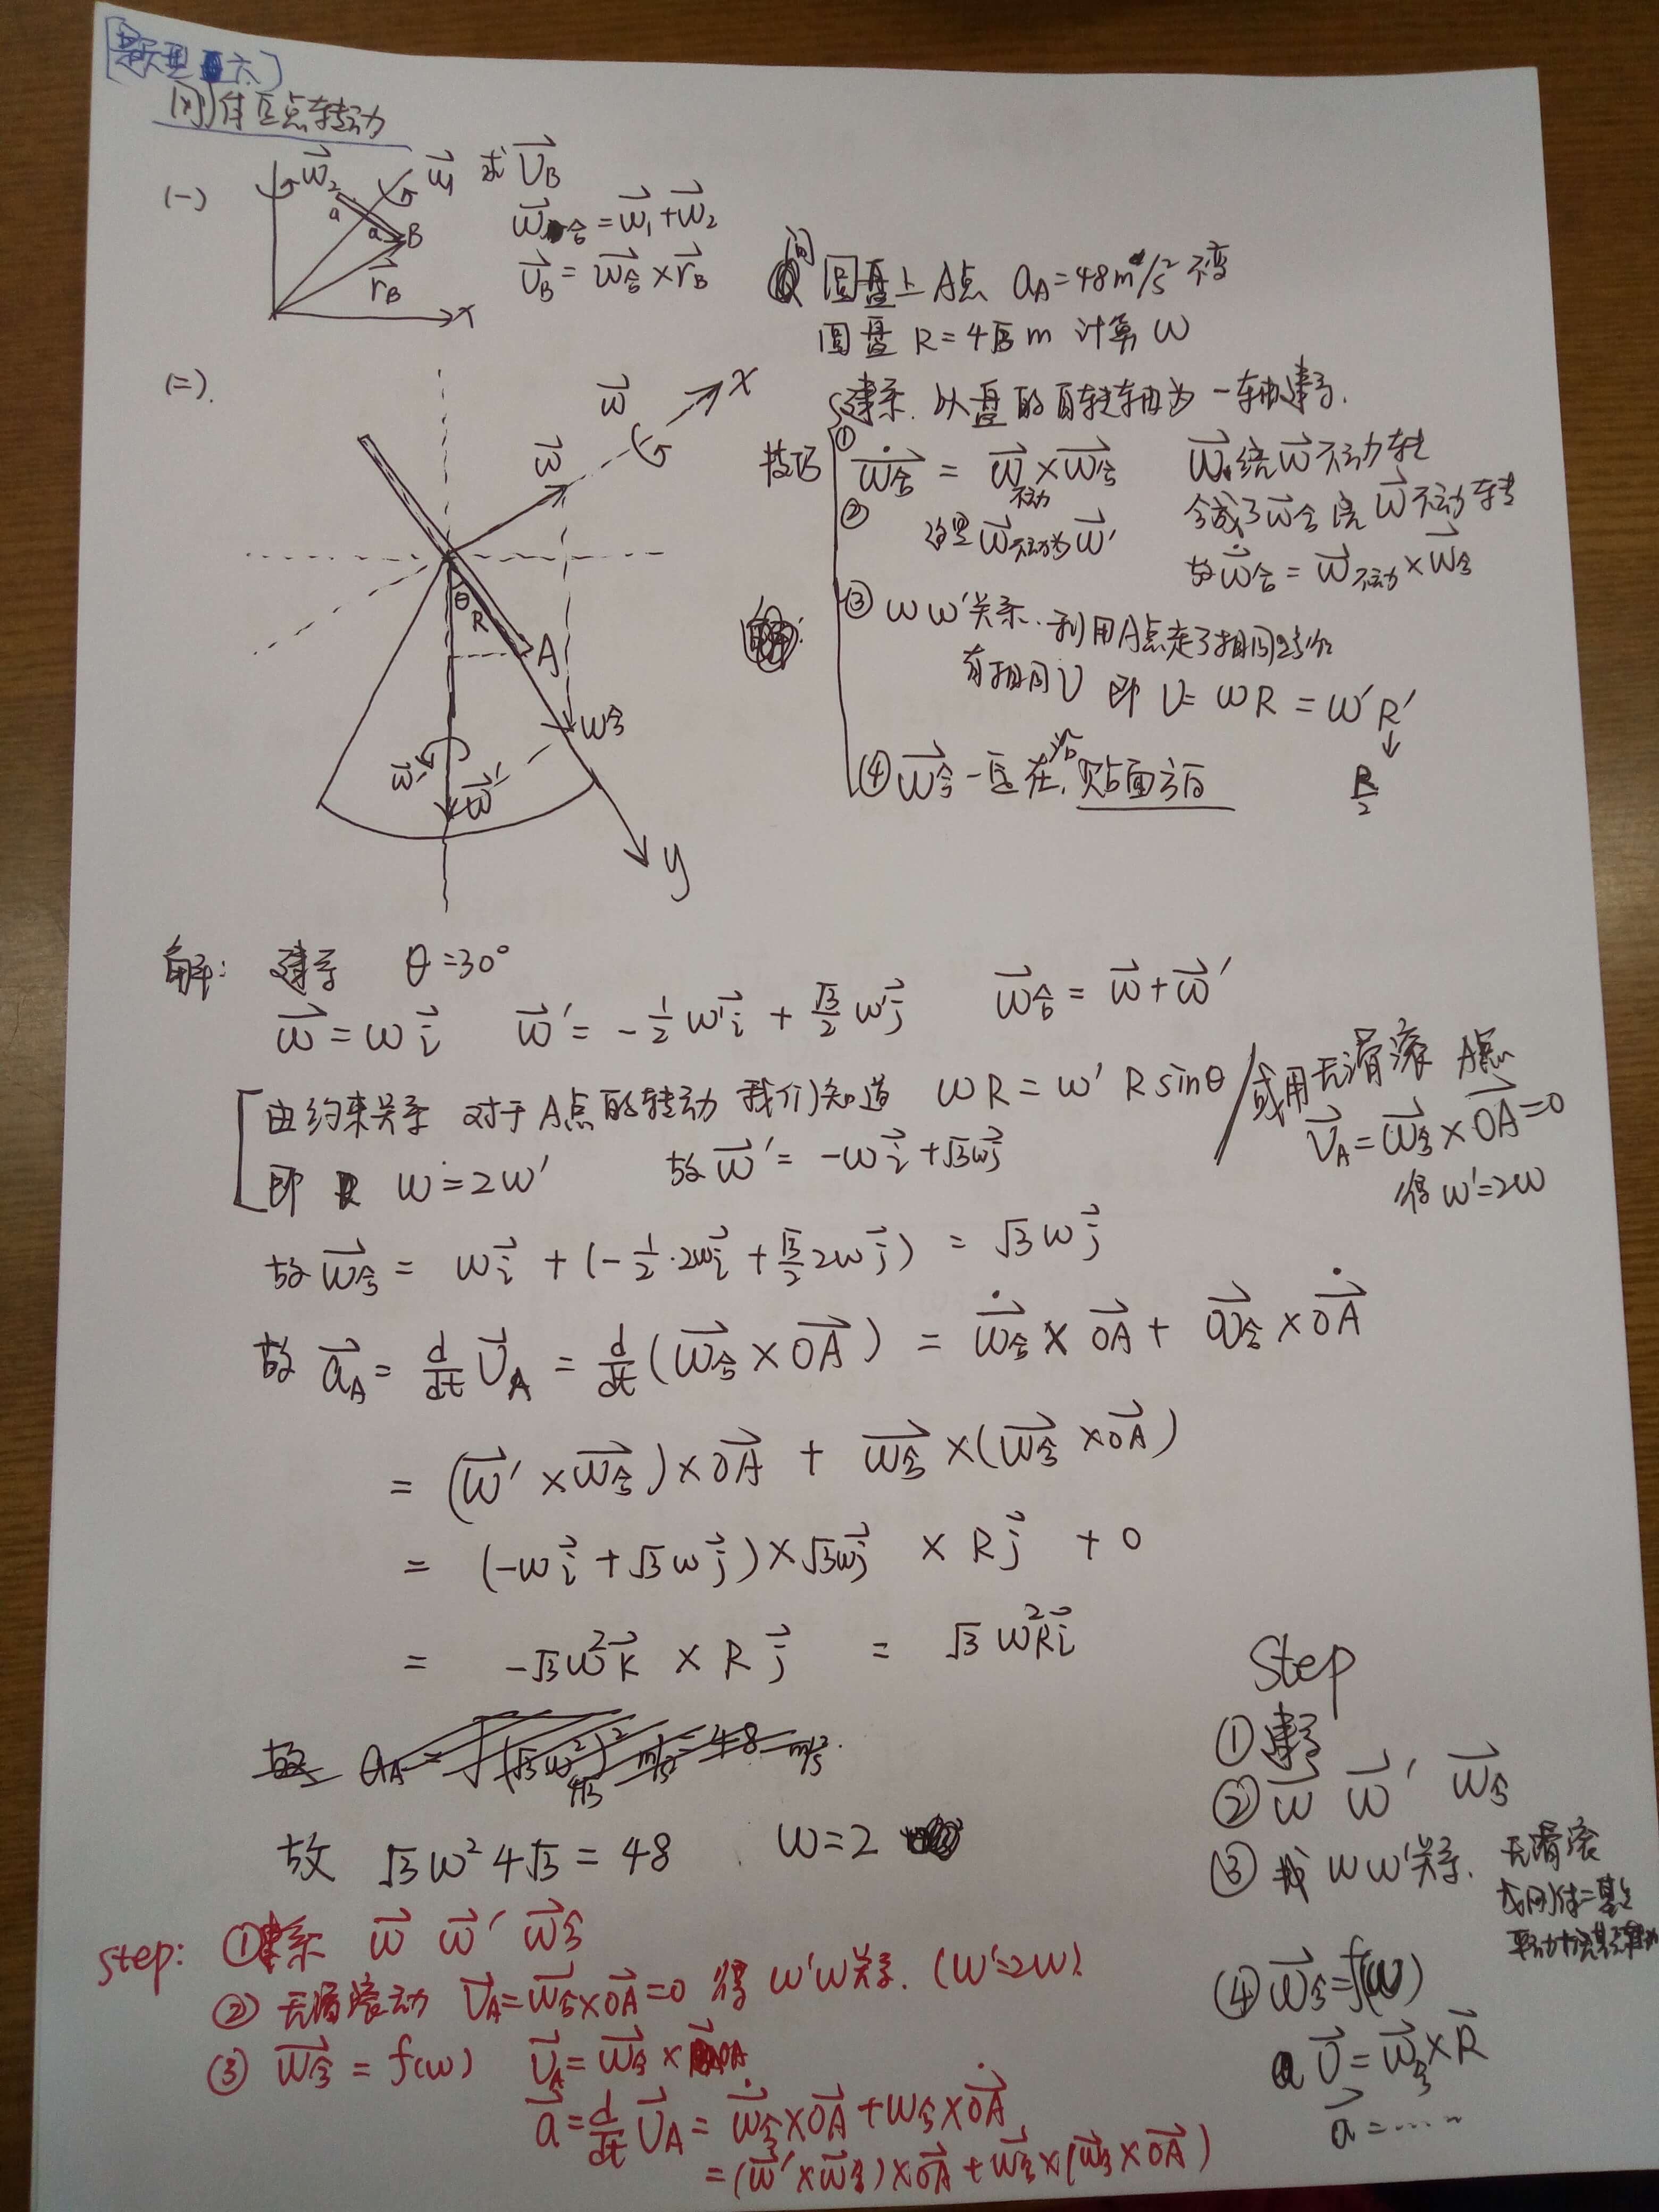 [题型六]
刚体定点转动
(一) ω⃗₂ ω⃗₁ 求 V⃗_B
a a B r⃗_B x
ω⃗合 = ω⃗₁ + ω⃗₂
V⃗_B = ω⃗合 × r⃗_B
问 圆盘上A点 a_A = 48 m/s² 不变
圆盘 R = 4√3 m 计算 ω
(二).
ω⃗ x
ω⃗
θ R A
ω合
ω⃗' ω⃗'
y
技巧
① 建系. 以盘的自转轴为一轴建系.
ω⃗̇合 = ω⃗不动 × ω⃗合
② 这里 ω⃗不动为 ω⃗'
ω⃗绕ω⃗不动转
合成了ω⃗合绕ω⃗不动转
故 ω⃗̇合 = ω⃗不动 × ω⃗合
③ ω ω'关系. 利用A点走了相同路程
有相同V 即 V = ωR = ω'R'
↓
R/2
④ ω⃗合一定在 贴面方向
解: 建系 θ = 30°
ω⃗ = ω i⃗ ω⃗' = -1/2 ω' i⃗ + √3/2 ω' j⃗ ω⃗合 = ω⃗ + ω⃗'
由约束关系 对于A点的转动 我们知道 ωR = ω' R sinθ / 或用无滑滚 A点
V⃗_A = ω⃗合 × OA⃗ = 0
得 ω' = 2ω
即 ω = 2ω' 故 ω⃗' = -ω i⃗ + √3 ω j⃗
故 ω⃗合 = ω i⃗ + (-1/2·2ω i⃗ + √3/2 2ω j⃗) = √3 ω j⃗
故 a⃗_A = d/dt V⃗_A = d/dt (ω⃗合 × OA⃗) = ω⃗̇合 × OA⃗ + ω⃗合 × OA⃗̇
= (ω⃗' × ω⃗合) × OA⃗ + ω⃗合 × (ω⃗合 × OA⃗)
= (-ω i⃗ + √3 ω j⃗) × √3 ω j⃗ × R j⃗ + 0
= -√3 ω² k⃗ × R j⃗ = √3 ω² R i⃗
故 √3 ω² 4√3 = 48 ω = 2
Step
① 建系
② ω⃗ ω⃗' ω⃗合
③ 找 ω ω'关系. 无滑滚
④ ω⃗合 = f(ω)
V⃗ = ω⃗合 × R⃗
a⃗ = ······
step: ① 建系 ω⃗ ω⃗' ω⃗合
② 无滑滚动 V⃗_A = ω⃗合 × OA⃗ = 0 得 ω'ω关系. (ω' = 2ω)
③ ω⃗合 = f(ω) V⃗_A = ω⃗合 × OA
a⃗ = d/dt V⃗_A = ω⃗̇合 × OA⃗ + ω合 × OA⃗̇
= (ω⃗' × ω⃗合) × OA⃗ + ω⃗合 × (ω⃗合 × OA⃗)